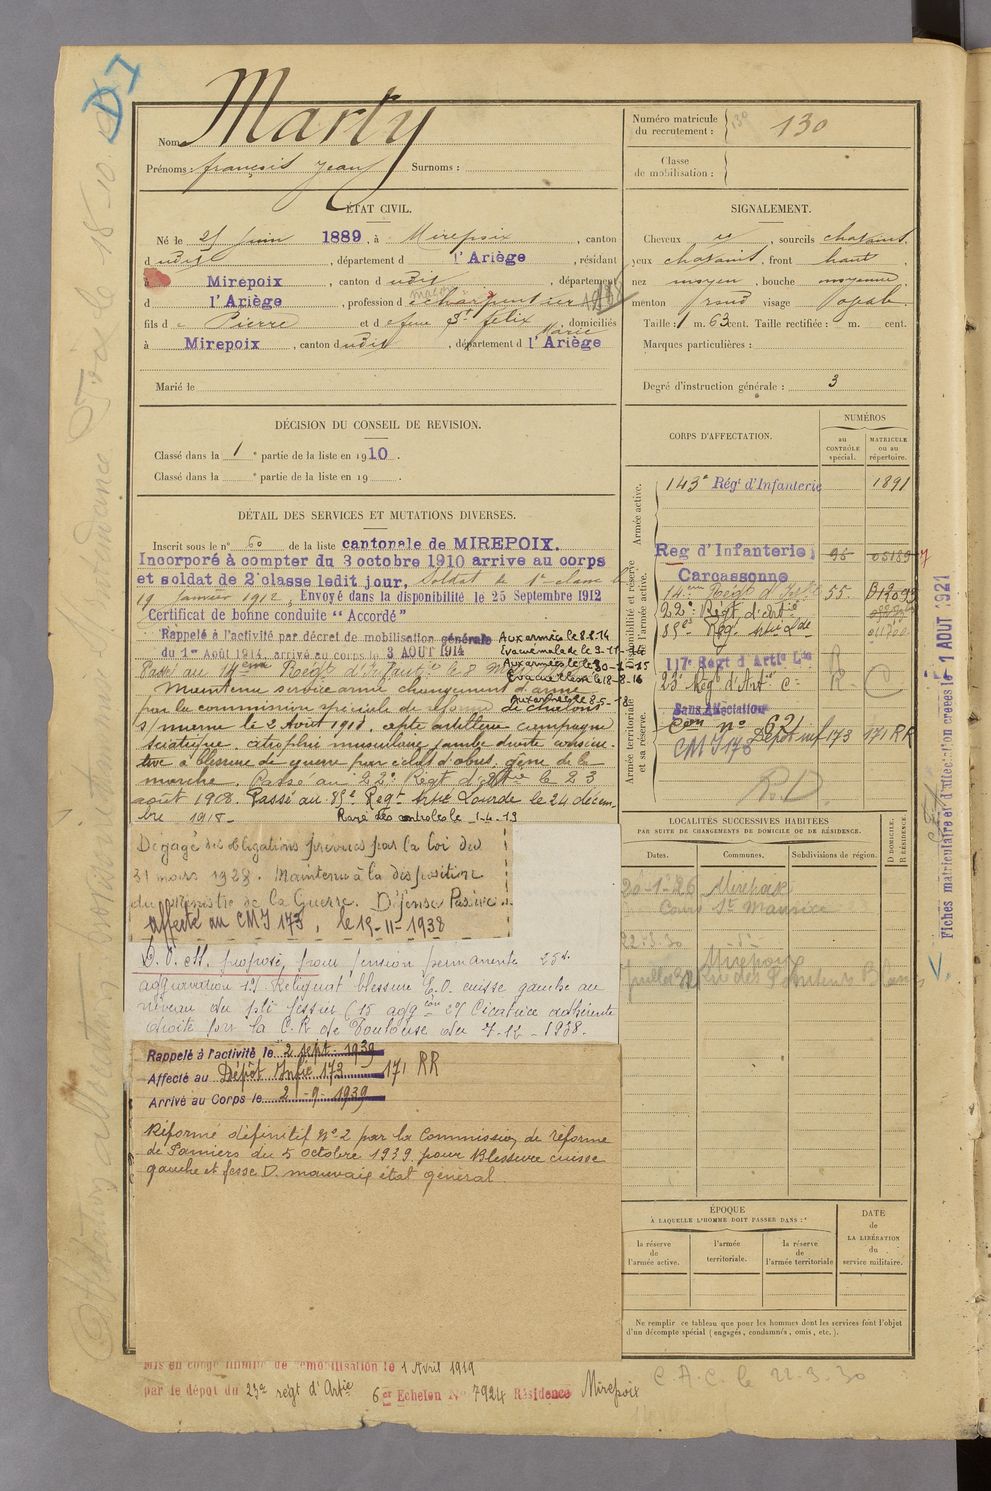 Nom Marty
Prénoms : françois Jean Surnoms :
Numéro matricule
du recrutement : 130
Classe
de mobilisation :
ÉTAT CIVIL.
Né le 25 Juin 1889, à Mirepoix, canton
d udit, département d l'Ariège, résidant
à Mirepoix, canton d udit, département
d l'Ariège, profession d charpentier
fils d e Pierre et d e feue St felix Marie, domiciliés
à Mirepoix, canton d udit, département d l'Ariège
Marié le
SIGNALEMENT.
Cheveux et, sourcils chatains,
yeux chatains, front haut
nez moyen, bouche moyenne
menton rond visage oval
Taille : 1 m. 63 cent. Taille rectifiée : m. cent.
Marques particulières :
Degré d'instruction générale : 3
DÉCISION DU CONSEIL DE REVISION.
Classé dans la 1 e partie de la liste en 1910.
Classé dans la e partie de la liste en 19 .
DÉTAIL DES SERVICES ET MUTATIONS DIVERSES.
Inscrit sous le n° 60 de la liste cantonale de MIREPOIX.
Incorporé à compter du 3 octobre 1910 arrive au corps
et soldat de 2e classe ledit jour, Soldat de 1re classe le
19 janvier 1912, Envoyé dans la disponibilité le 25 Septembre 1912
Certificat de bonne conduite "Accordé"
Rappelé à l'activité par décret de mobilisation générale
du 1er Août 1914, arrivé au corps le 3 AOUT 1914
Aux armées le 8.8.14
Evacué malade le 9-11-14
Aux armées le 30-1-15
Evacué blessé le 18-8-16
Aux armées le 8-5-18
Passé au 14eme Régt d'Infant le 8
Maintenu service armé changement d'arme
par la commission spéciale de réforme de Chalons
s/marne le 2 Août 1918, cette artillerie campagne
sciatique, atrophie musculaire jambe droite consécu-
tive à blessure de guerre par éclat d'obus, gêne de la
marche. Passé au 22e Régt d'Artie le 23
août 1918. Passé au 85e Regt Artie Lourde le 24 décem-
bre 1918- Rayé des contrôles le 1-4-19
Dégagé des obligations prévues par la loi du
31 mars 1928. Maintenu à la disposition
du Ministre de la Guerre. Défense Passive
affecté au CMI 173, le 15-11-1938
D.O.M. proposé pour pension permanente 25%
aggravation 1°) Reliquat blessure E.O. cuisse gauche au
niveau du pli fessier (15 aggon 2°) Cicatrice adhérente
droite par la C.R de Toulouse du 7-12-1938.
Rappelé à l'activité le 2 sept 1939
Affecté au Dépôt Infie 173 171 RR
Arrivé au Corps le 2-9-1939
Réformé définitif N°2 par la Commission de réforme
de Pamiers du 5 octobre 1939 pour Blessure cuisse
gauche et fesse D. mauvais état général.
Mis en congé illimité de démobilisation le 1 Avril 1919
par le dépôt du 23e régt d'Artie 6er Echelon No 7924 Résidence Mirepoix
CORPS D'AFFECTATION.
NUMÉROS
au
CONTRÔLE
spécial.
MATRICULE
ou au
répertoire.
Armée active.
143e Régt d'Infanterie 1891
Disponibilité et réserve
de l'armée active.
Reg d'Infanterie 96 05189
Carcassonne
14eme Régt d'Infie 55
22e Régt d'Artie
85e Reg. Artie Lde
Armée territoriale
et sa réserve.
117e Regt d'Artie Lde
23e Reg d'Artie Ce
Sans Affectation
Con n° 621
CMI 173 Dépôt inf 173 171 RR
R.D.
LOCALITÉS SUCCESSIVES HABITÉES
PAR SUITE DE CHANGEMENTS DE DOMICILE OU DE RÉSIDENCE.
Dates.
Communes.
Subdivisions de région.
D DOMICILE.
R RÉSIDENCE.
20-1-26 Mirepoix
Cours St Maurice
22-3-30 -d°-
Mirepoix
ÉPOQUE
À LAQUELLE L'HOMME DOIT PASSER DANS :
la réserve
de
l'armée active.
l'armée
territoriale.
la réserve
de
l'armée territoriale
DATE
de
LA LIBÉRATION
du
service militaire.
Ne remplir ce tableau que pour les hommes dont les services font l'objet
d'un décompte spécial (engagés, condamnés, omis, etc.).
C.A.C. le 22-3-30
Fiches matriculaire et d'affectation créées le 1 AOUT 1921